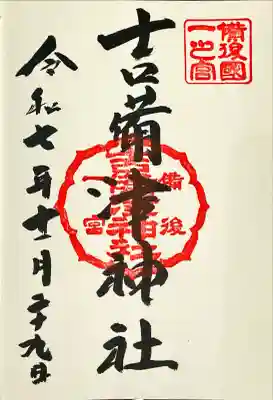 備後國
一之宮
吉備津神社
備後
一宮
令和七年十一月二十九日